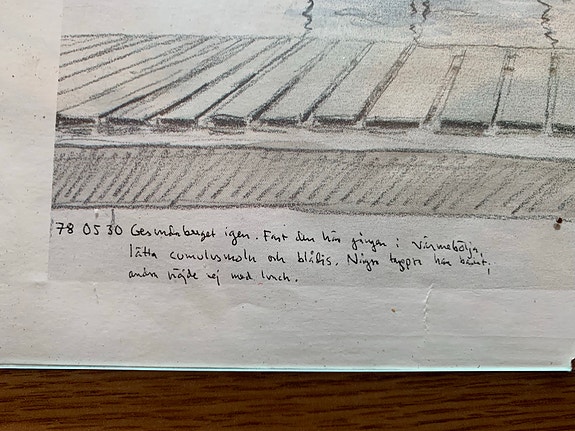 78 05 30 Gesundaberget igen. Fast den här gången i värmebölja,
lätta cumulusmoln och blåfis. Några tappra har badat,
andra nöjde sej med lunch.